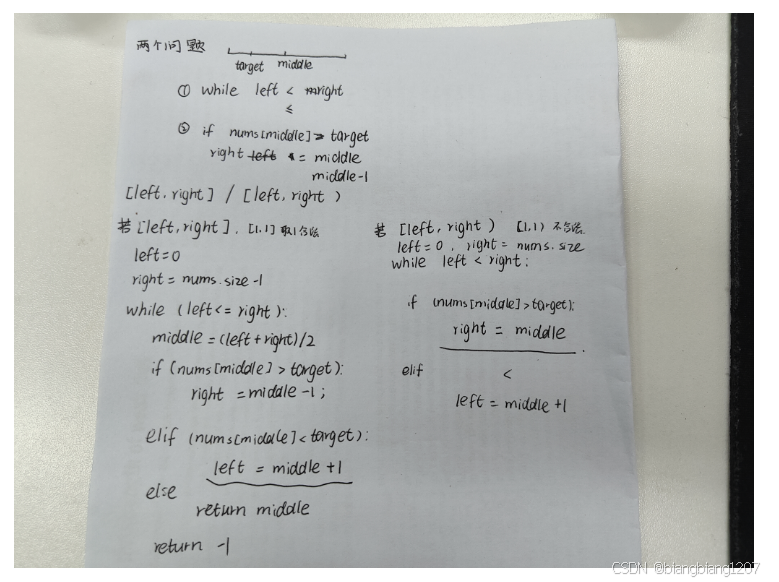 两个问题
target middle
① while left < right
≤
② if nums[middle] > target
right left = middle
middle-1
[left, right] / [left, right)
若 [left, right], [1,1] 合法
left=0
right = nums.size -1
while (left<= right):
middle = (left+right)/2
if (nums[middle] > target):
right = middle -1;
elif (nums[middle] < target):
left = middle +1
else
return middle
return -1
若 [left, right) [1,1) 不合法
left = 0, right = nums.size
while left < right:
if (nums[middle] > target):
right = middle
elif <
left = middle +1
CSDN @biangbiang1207